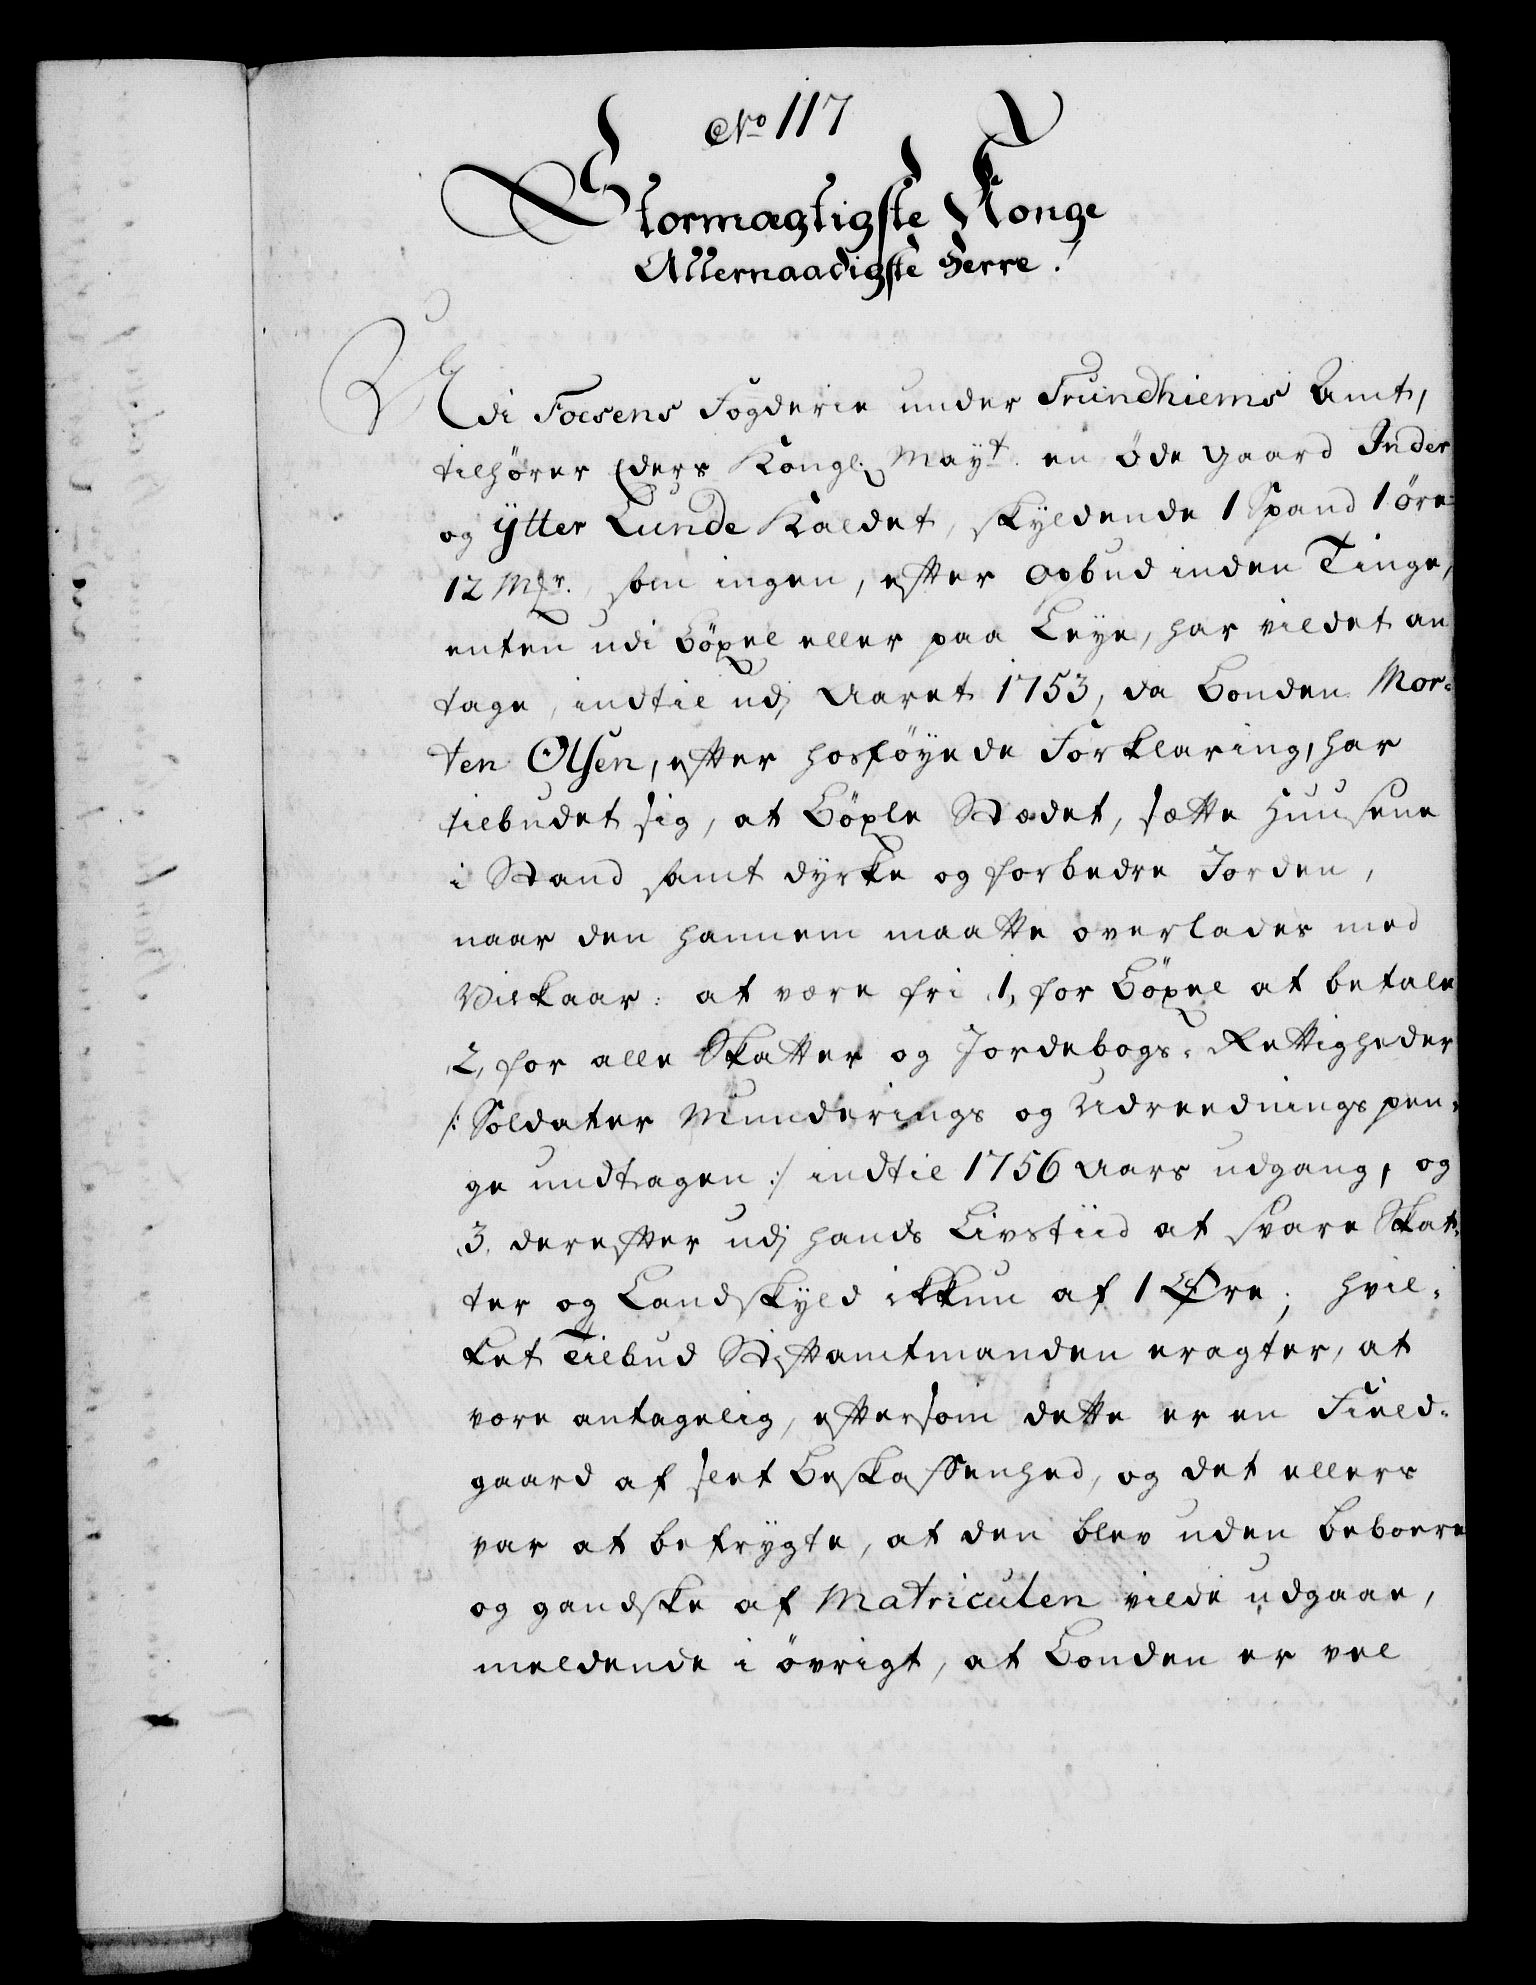 No 117
Stormægtigste Konge
Allernaadigste Herre!
Udi Fosens Fogderie under Trundhiems Amt,
tilhører Eders Kongl. Mayt. en öde Gaard Inder
og Ytter Lunde kaldet, skyldende 1 Spand 1 öre
12 Mkr. som ingen, efter Opbud inden Tinge,
enten udi Böxel eller paa Leye, har vildet an
tage, indtil udj Aaret 1753, da Bonden Mor-
ten Olsen, efter hosföyede Forklaring, har
tilbudet sig, at Böxle Stædet, sætte Huusene
i Stand samt dyrke og forbedre Jorden,
naar den hannem maatte overlades med
Vilkaar: at være fri 1, for Böxel at betale
2, for alle Skatter og Jordebogs-Rettigheder
/: Soldater Munderings og Udreednings pen-
ge undtagen :/ indtil 1756 Aars udgang, og
3. derefter udj hands Livstiid at svare Skat-
ter og Landskyld ikkun af 1 Øre; hvil-
ket Tilbud Stiftamtmanden eragter, at
være antagelig, eftersom dette er en Field-
gaard af slet Beskaffenhed, og det ellers
var at befrygte, at den blev uden beboere
og gandske af Matriculen vilde udgaae,
meldende i övrigt, at Bonden er vel